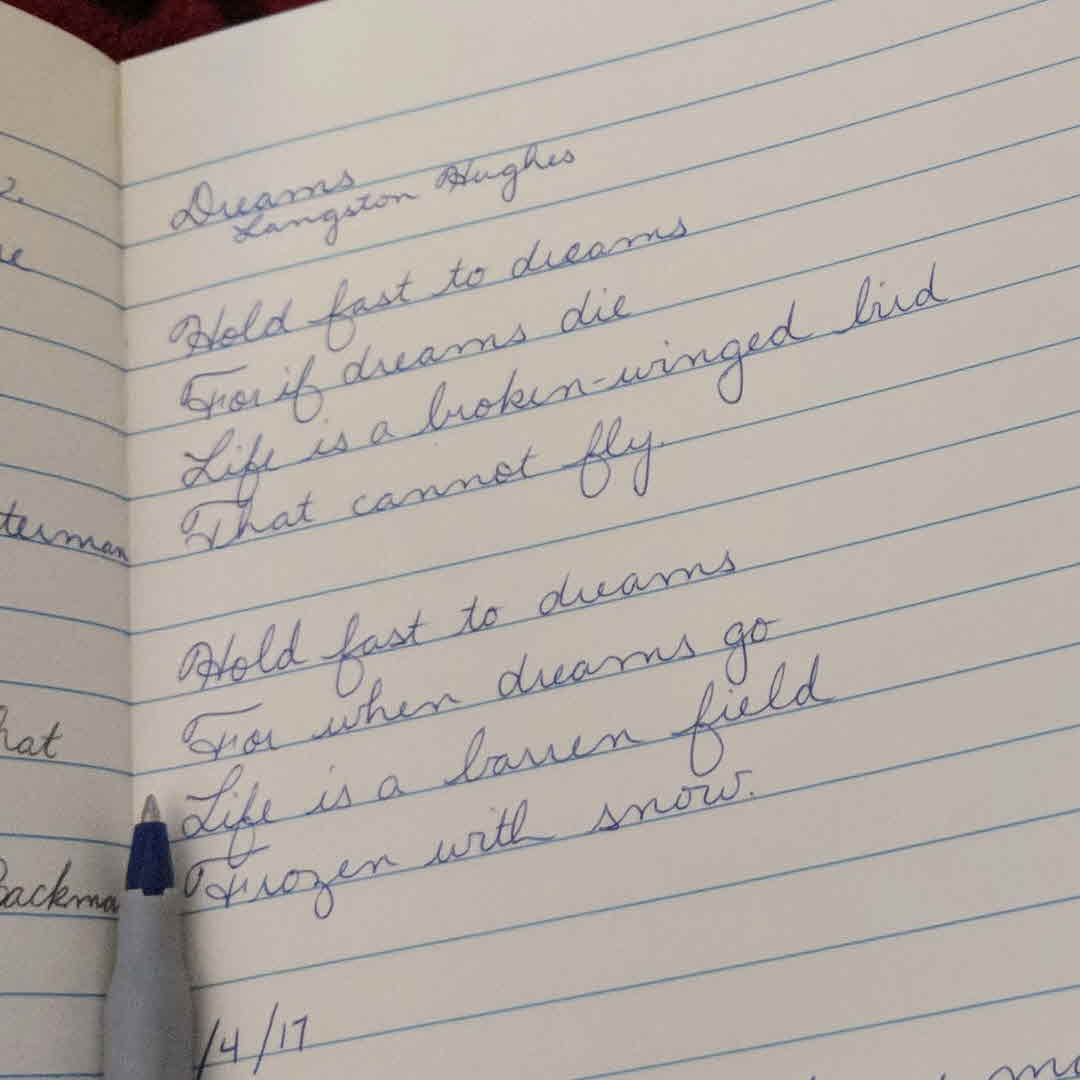 Dreams
Langston Hughes
Hold fast to dreams
For if dreams die
Life is a broken-winged bird
That cannot fly.
Hold fast to dreams
For when dreams go
Life is a barren field
Frozen with snow.
/4/17
2.
re
terman
hat
Backma